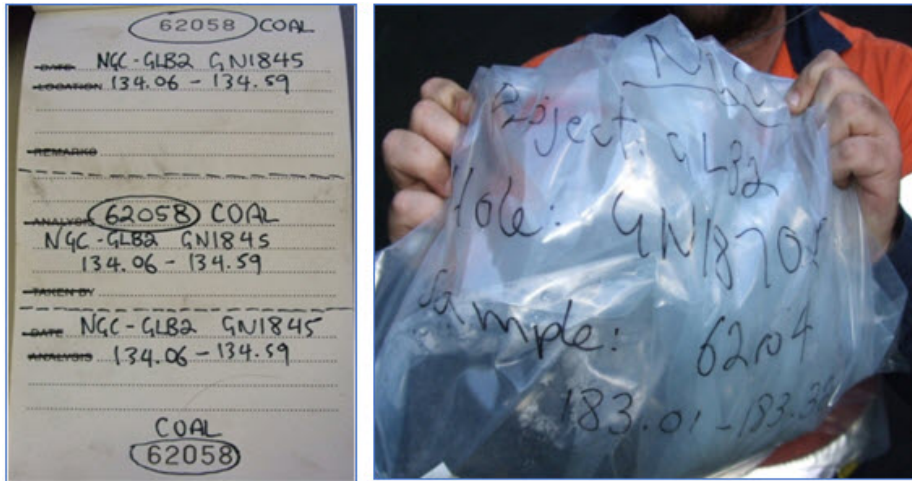 62058 COAL
DATE NGC-GLB2 GN1845
LOCATION 134.06 - 134.59
REMARKS
ANALYSIS 62058 COAL
NGC-GLB2 GN1845
134.06 - 134.59
TAKEN BY
DATE NGC-GLB2 GN1845
ANALYSIS 134.06 - 134.59
COAL
62058
Project: GLB2
Hole:
Sample:
183.01 - 183.39